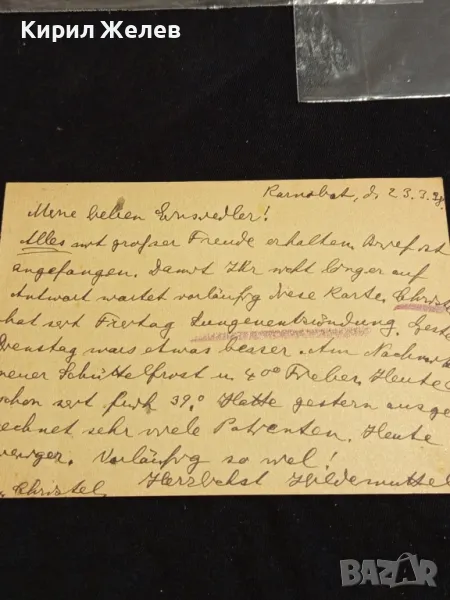 Кирил Желев
Karnobat, d. 23.3.38.
Meine lieben Einsiedler!
Alles mit grosser Freude erhalten. Brief ist
angefangen. Damit Ihr nicht länger auf
Antwort wartet vorläufig diese Karte. Christel
hat seit Freitag Lungenentzündung. Geste
Dienstag war's etwas besser. Am Nachmit
neuer Schüttelfrost u. 40° Fieber. Heute
schon seit früh 39.° Hatte gestern ausge
rechnet sehr viele Patienten. Heute
weniger. Vorläufig so viel!
Christel Herzlichst Hildemuttel
BAZAR
.bg